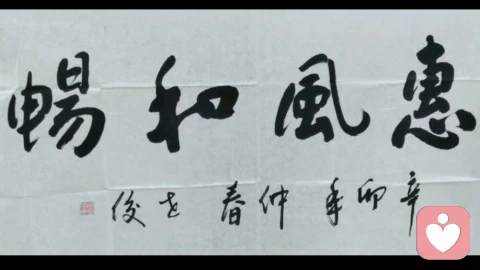 惠風和暢
辛卯年仲春 志俊